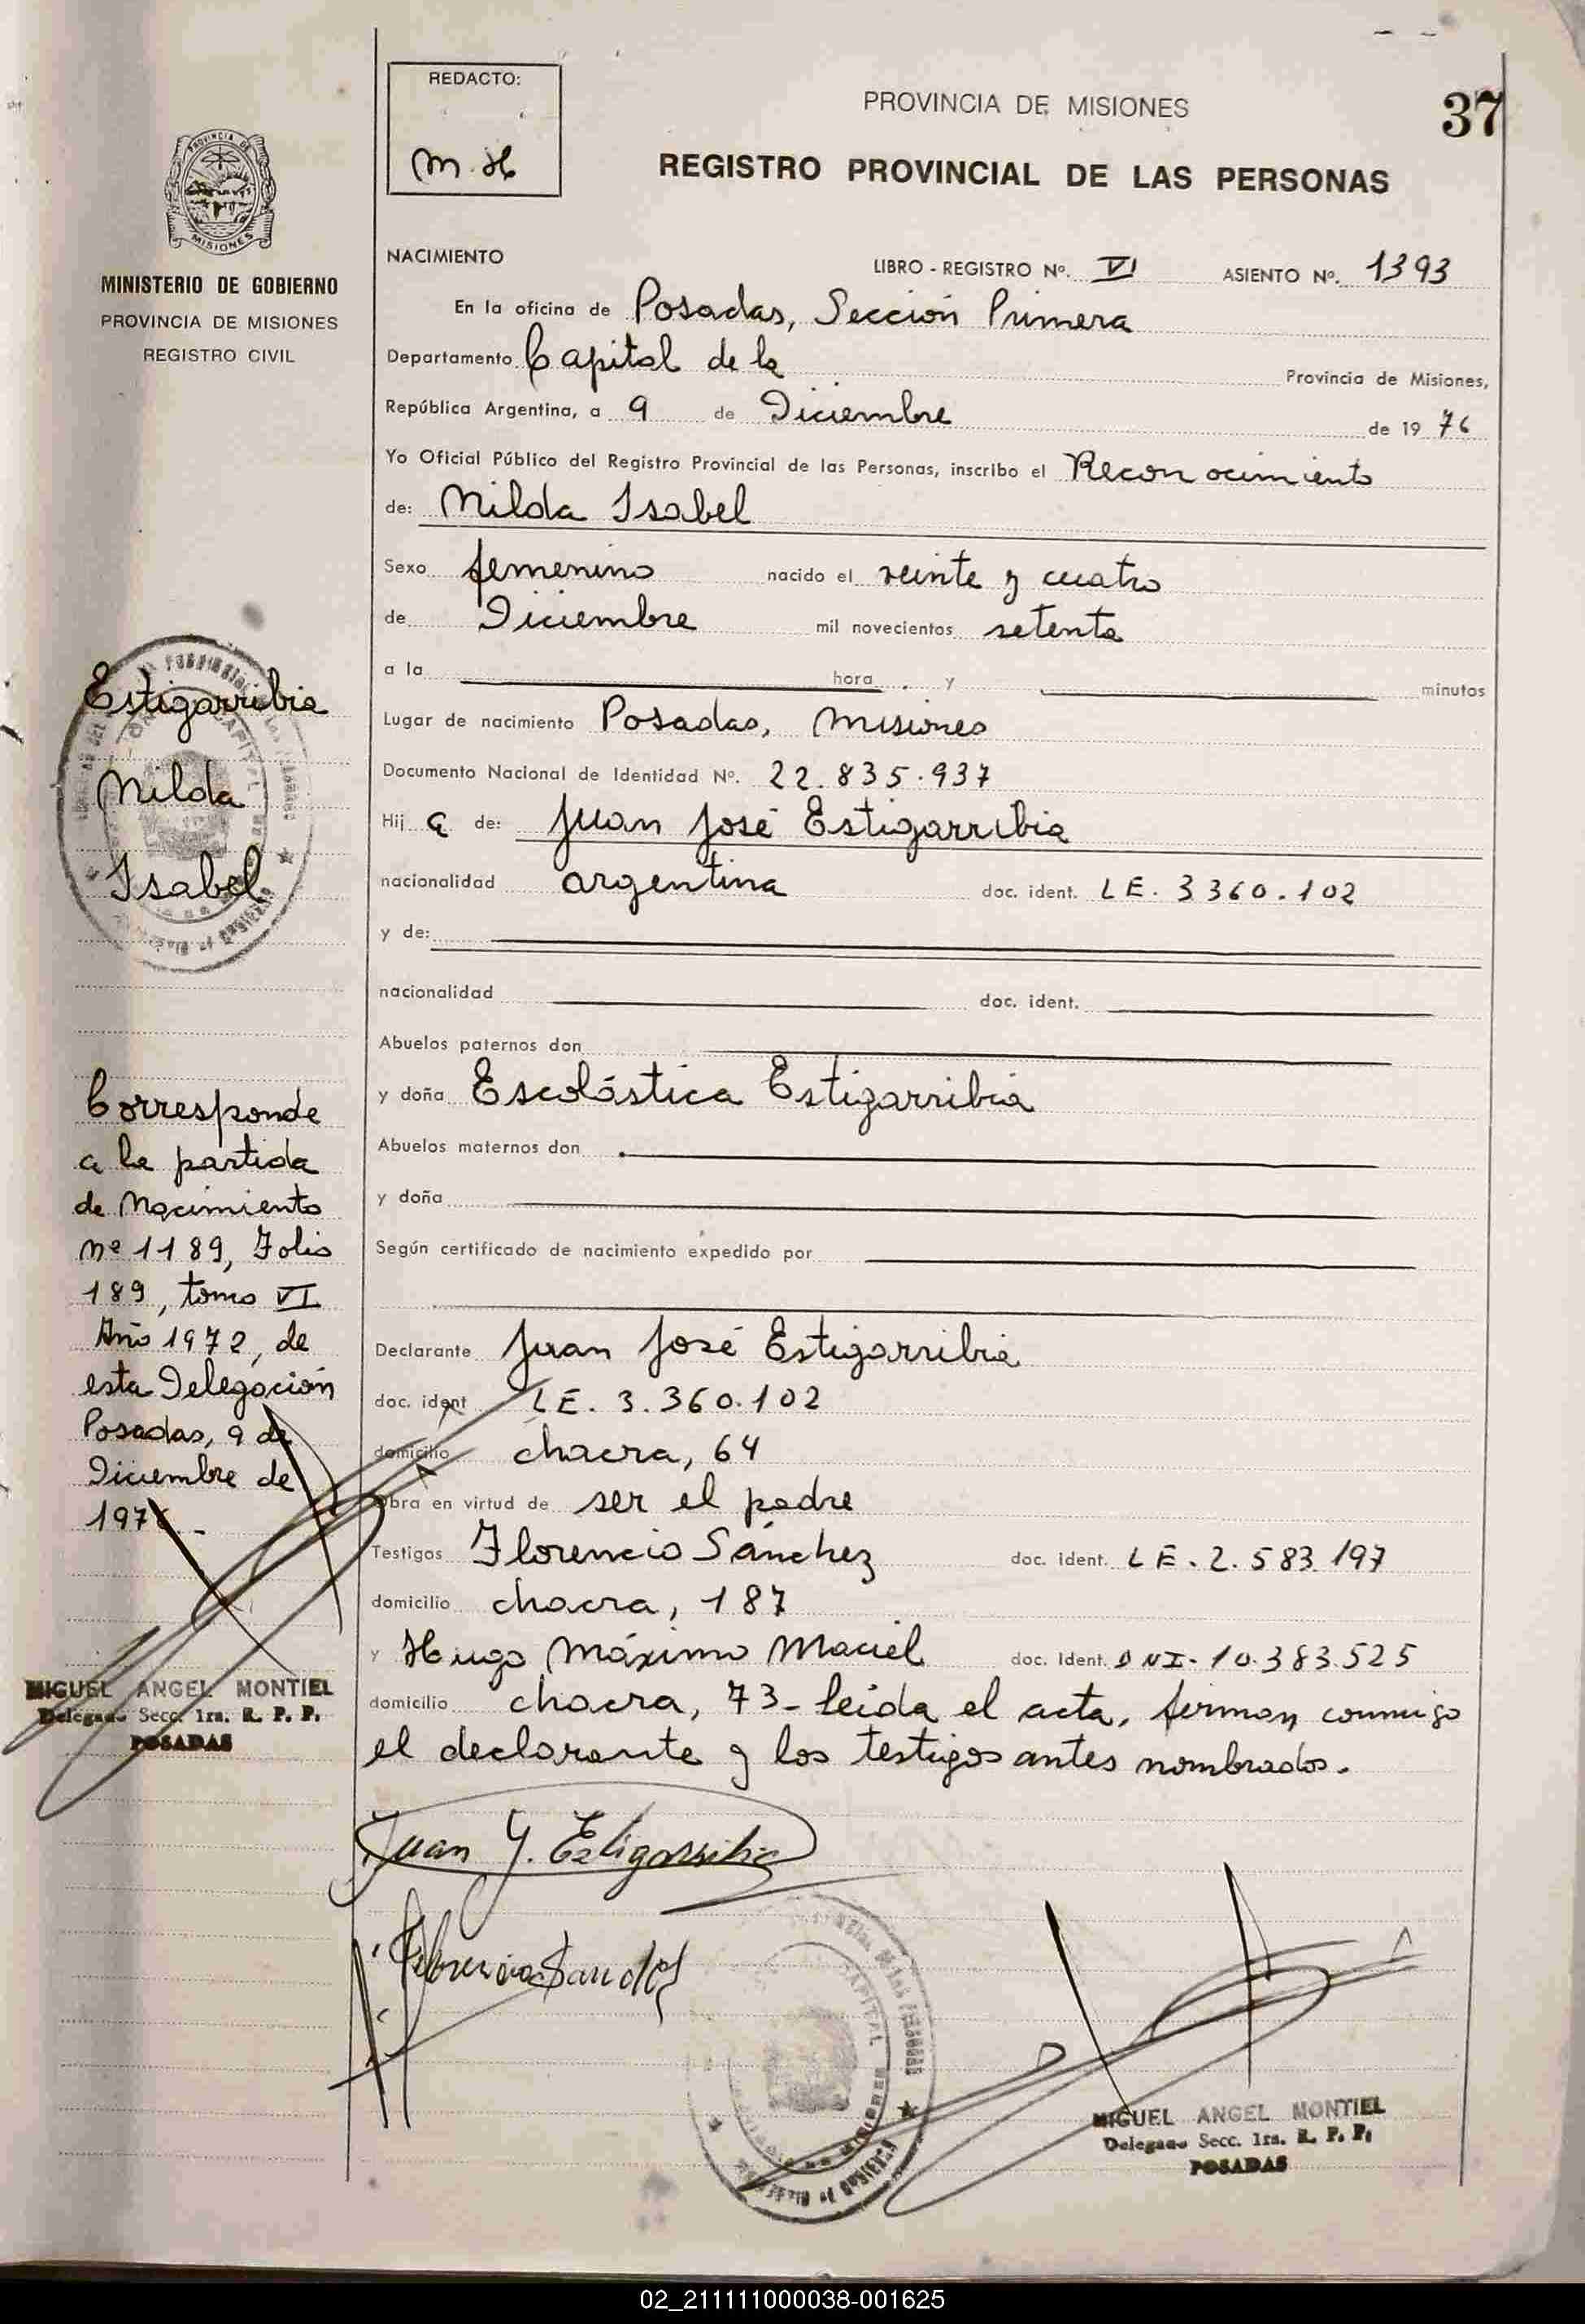 REDACTO:
M.H
37
PROVINCIA DE MISIONES
REGISTRO PROVINCIAL DE LAS PERSONAS
PROVINCIA DE
MISIONES
MINISTERIO DE GOBIERNO
PROVINCIA DE MISIONES
REGISTRO CIVIL
NACIMIENTO LIBRO - REGISTRO Nº. VI ASIENTO Nº. 1393
En la oficina de Posadas, Sección Primera
Departamento Capital de la Provincia de Misiones,
República Argentina, a 9 de Diciembre de 1976
Yo Oficial Público del Registro Provincial de las Personas, inscribo el Reconocimiento
de: Nilda Isabel
Sexo femenino nacido el veinte y cuatro
de Diciembre mil novecientos setenta
a la hora y minutos
Lugar de nacimiento Posadas, Misiones
Documento Nacional de Identidad Nº. 22.835.937
Hij a de: Juan José Estigarribia
nacionalidad argentina doc. ident. LE. 3360.102
y de:
nacionalidad doc. ident.
Abuelos paternos don
y doña Escolástica Estigarribia
Abuelos maternos don
y doña
Según certificado de nacimiento expedido por
Declarante Juan José Estigarribia
doc. ident LE. 3.360.102
domicilio chacra, 64
Obra en virtud de ser el padre
Testigos Florencio Sánchez doc. ident. LE. 2.583.197
domicilio chacra, 187
y Hugo Máximo Maciel doc. Ident. DNI. 10.383.525
domicilio chacra, 73- leida el acta, firman conmigo
el declarante y los testigos antes nombrados.
Juan J. Estigarribia
Florencio Sanchez
MIGUEL ANGEL MONTIEL
Delegado Secc. 1ra. R. P. P.
POSADAS
Estigarribia
Nilda
Isabel
CAPITAL
Corresponde
a la partida
de Nacimiento
nº 1189, Folio
189, tomo VI
Año 1972, de
esta Delegación
Posadas, 9 de
Diciembre de
1976 -
MIGUEL ANGEL MONTIEL
Delegado Secc. 1ra. R. P. P.
POSADAS
CAPITAL
02_211111000038-001625